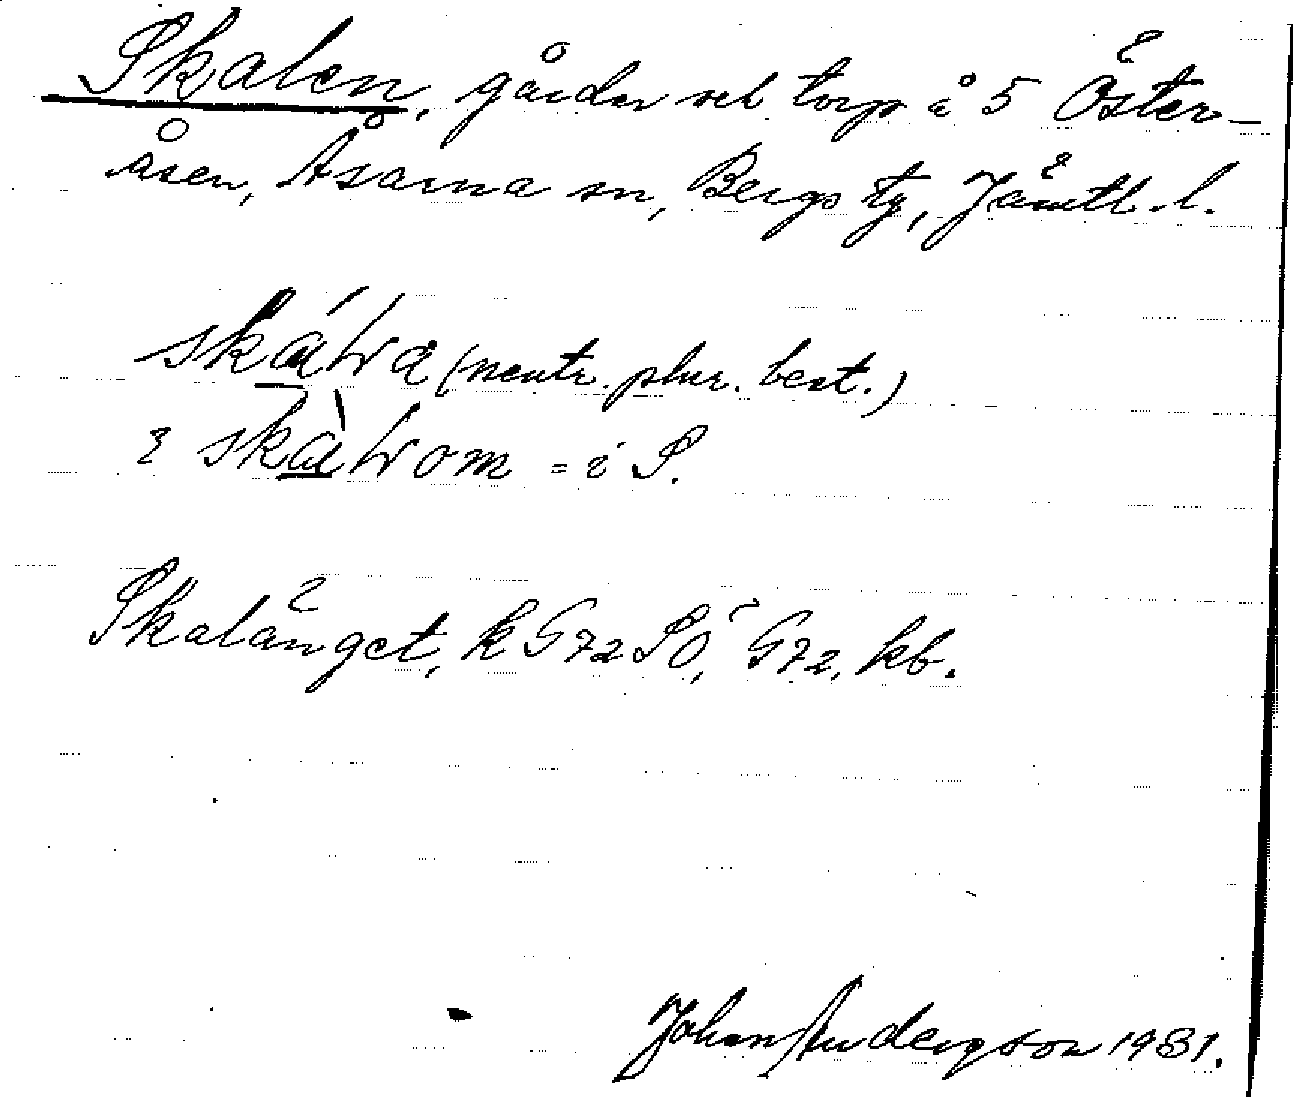 Skalen, gårdar och torp i 5 Öster-
åsen, Åsarna sn, Bergs tg, Jämtl. l.
skálra (neutr. plur. best.)
i skàlrom = i S.
Skalänget, k G72 SO, G72, kb.
Johan Anderson 1931.